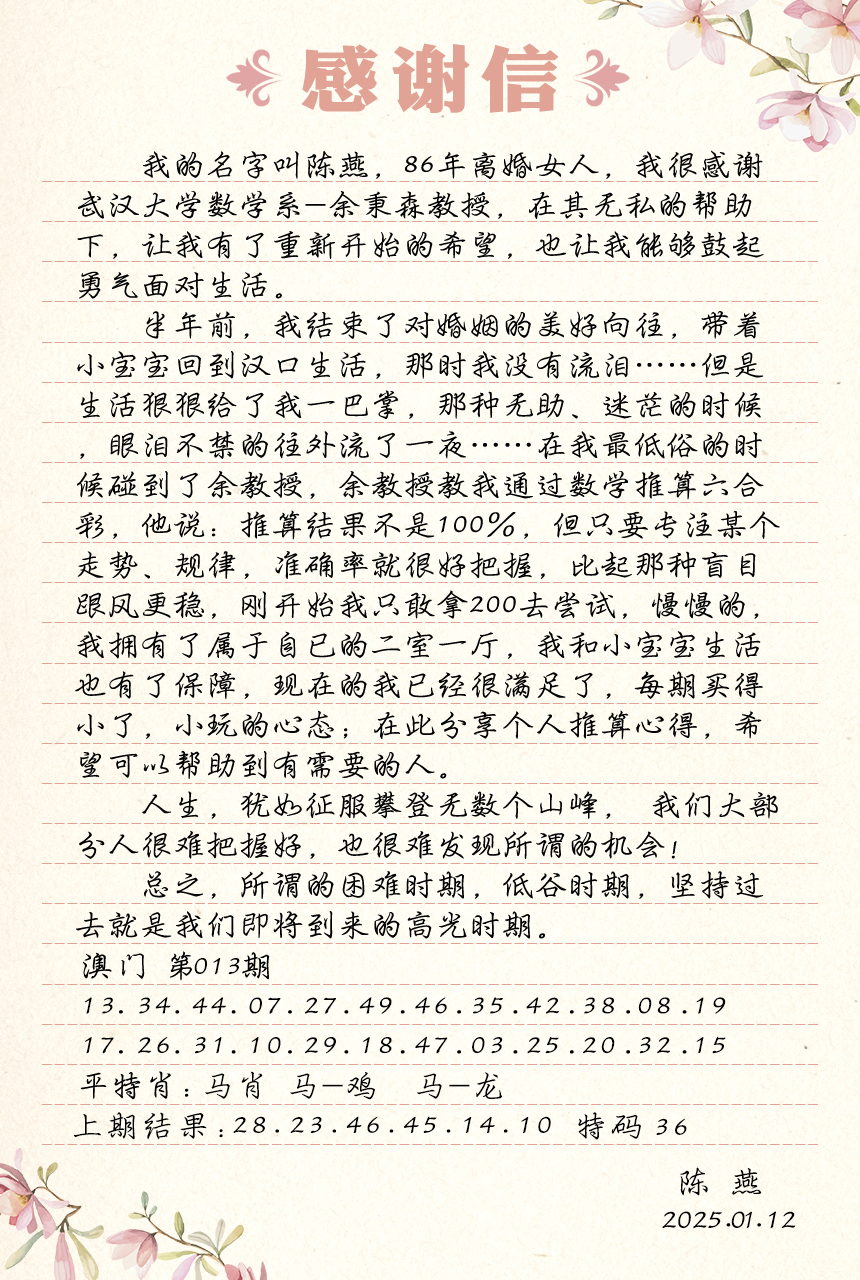 感谢信
我的名字叫陈燕，86年离婚女人，我很感谢
武汉大学数学系—余秉森教授，在其无私的帮助
下，让我有了重新开始的希望，也让我能够鼓起
勇气面对生活。
半年前，我结束了对婚姻的美好向往，带着
小宝宝回到汉口生活，那时我没有流泪……但是
生活狠狠给了我一巴掌，那种无助、迷茫的时候
，眼泪不禁的往外流了一夜……在我最低俗的时
候碰到了余教授，余教授教我通过数学推算六合
彩，他说：推算结果不是100%，但只要专注某个
走势、规律，准确率就很好把握，比起那种盲目
跟风更稳，刚开始我只敢拿200去尝试，慢慢的，
我拥有了属于自已的二室一厅，我和小宝宝生活
也有了保障，现在的我已经很满足了，每期买得
小了，小玩的心态；在此分享个人推算心得，希
望可以帮助到有需要的人。
人生，犹如征服攀登无数个山峰， 我们大部
分人很难把握好，也很难发现所谓的机会！
总之，所谓的困难时期，低谷时期，坚持过
去就是我们即将到来的高光时期。
澳门 第013期
13.34.44.07.27.49.46.35.42.38.08.19
17.26.31.10.29.18.47.03.25.20.32.15
平特肖：马肖 马—鸡 马—龙
上期结果：28.23.46.45.14.10 特码 36
陈 燕
2025.01.12